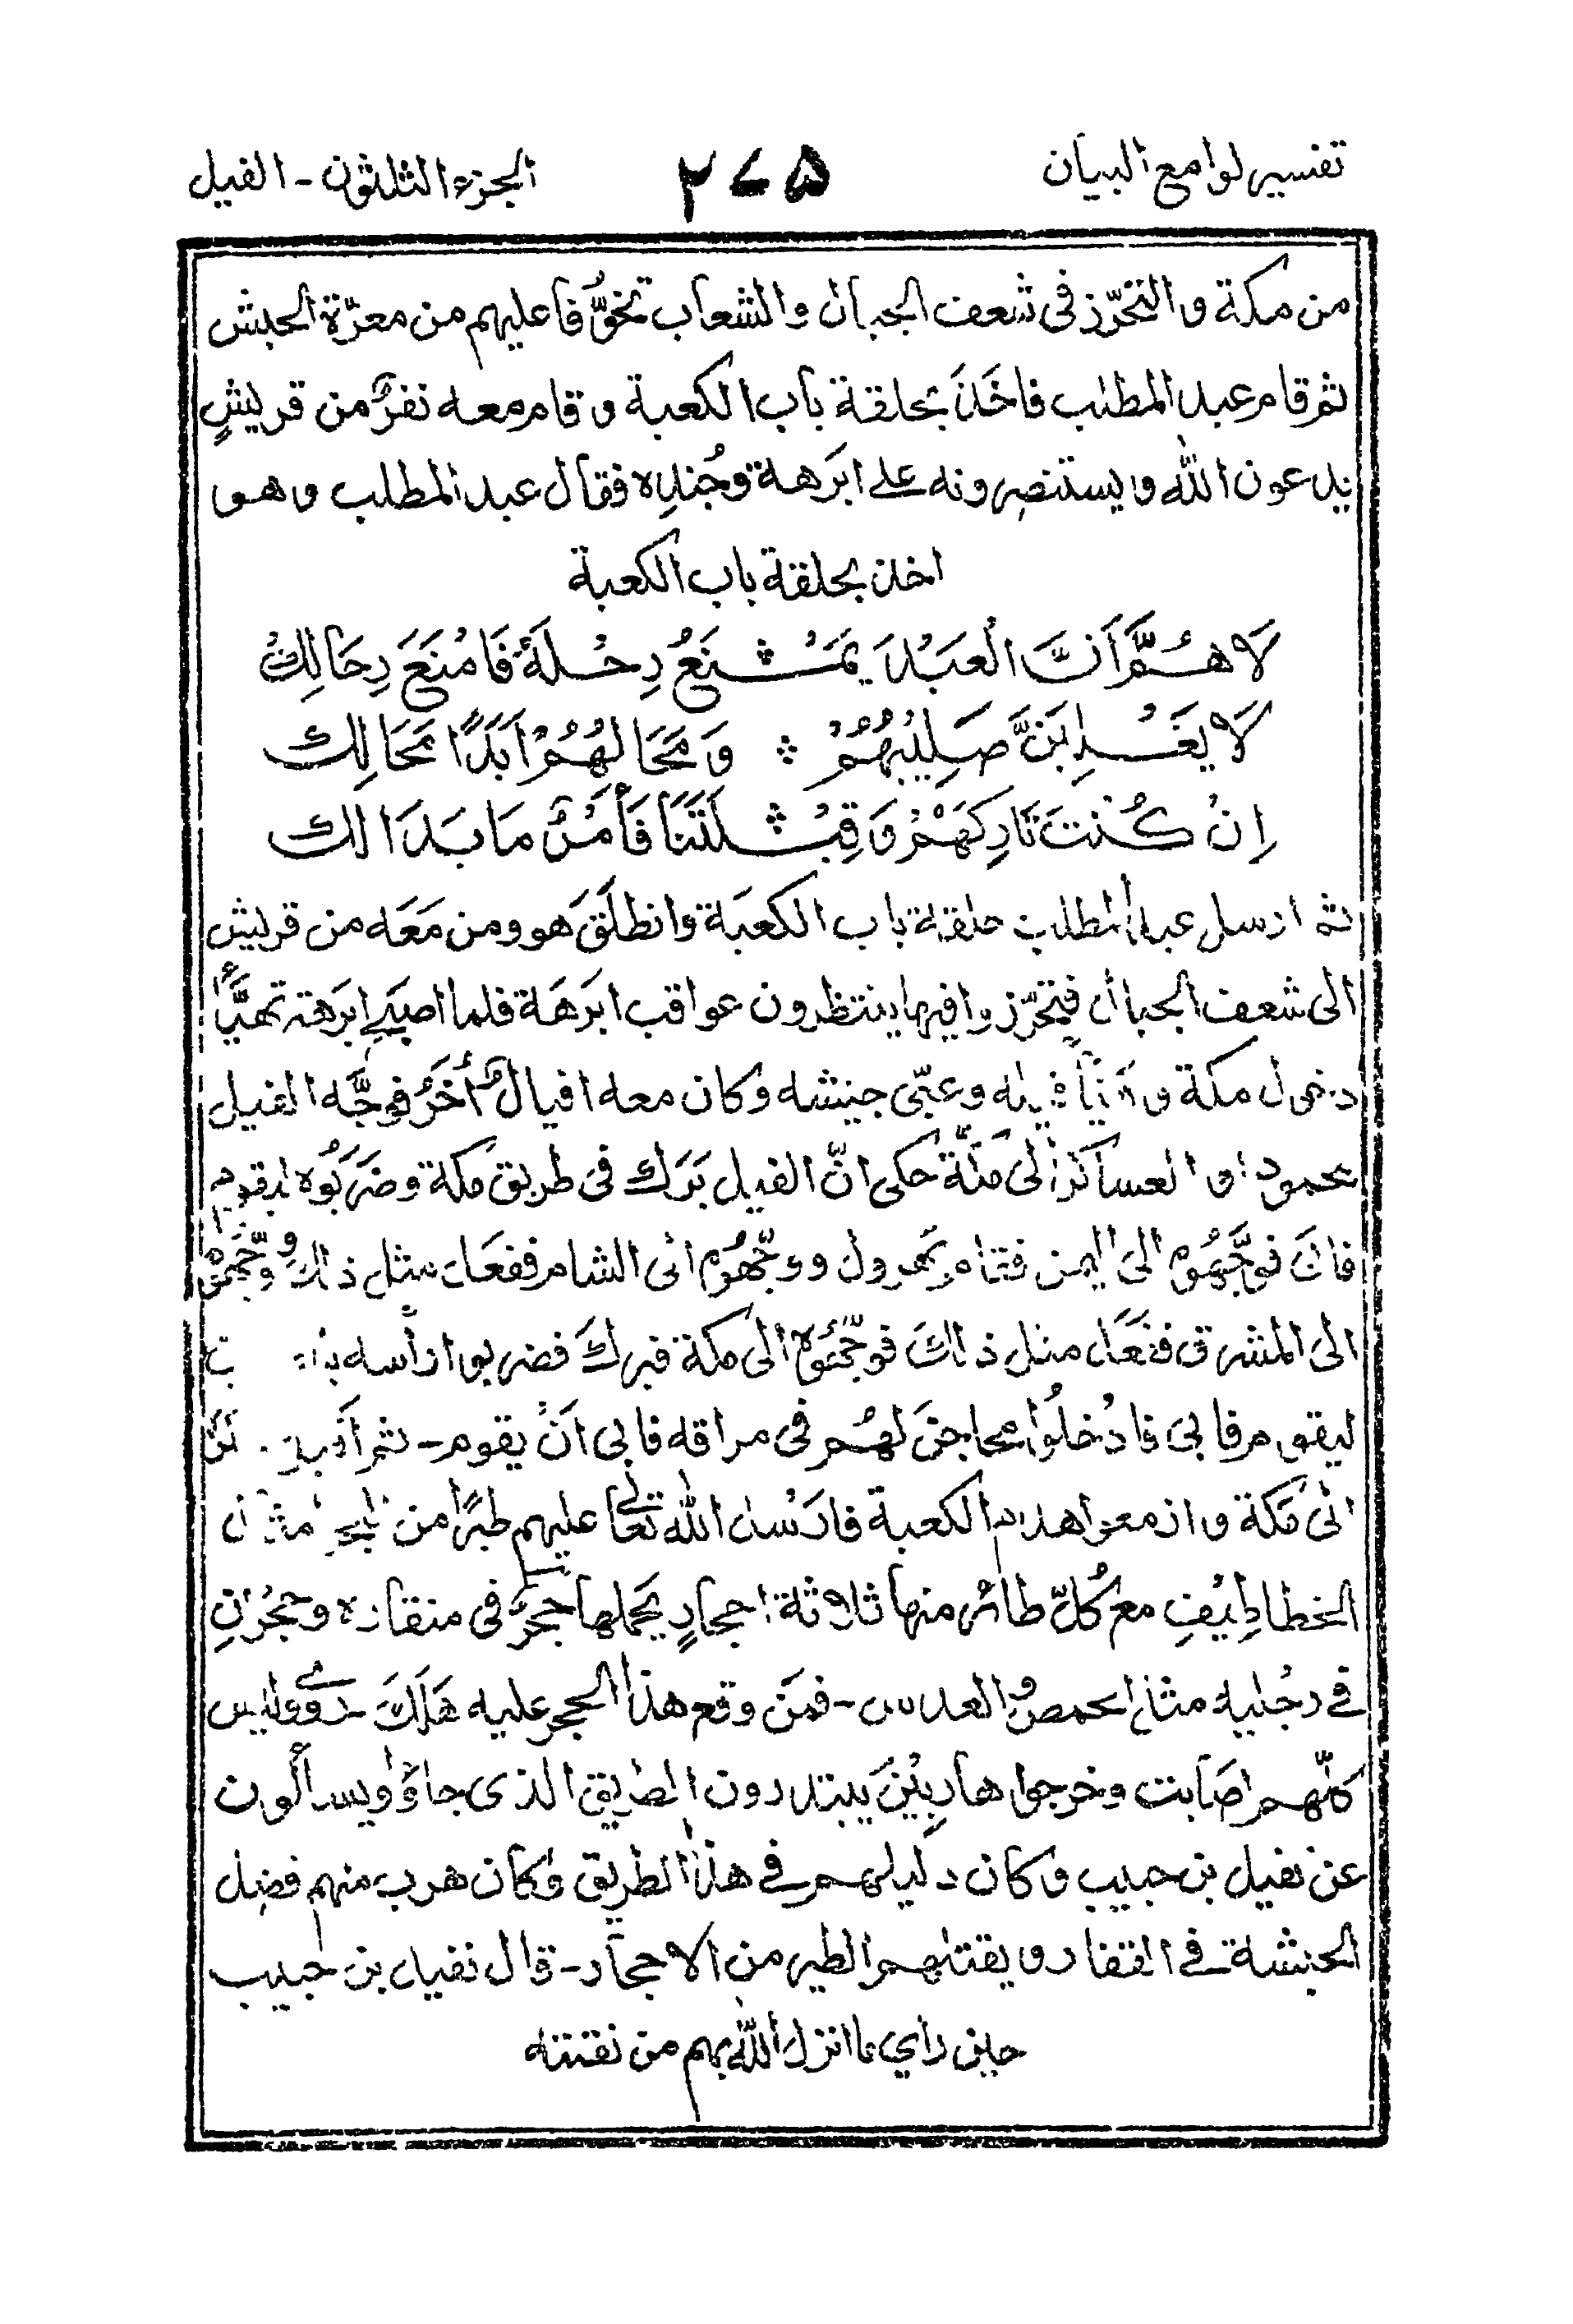 تفسير لوامع البيان ٢٧٥ الجزء الثلثون - الفيل
من مكة والتحرّز فى شعف الجبال والشعاب تخوُّفا عليهم من معرّة الحبش
ثم قام عبد المطلب فاخَذَ بحلقة باب الكعبة وقام معه نفرٌ من قريشٍ
يدعون الله ويستنصرونه على ابرَهة وجُندِه فقال عبد المطلب وهو
اخذ بحلقة باب الكعبة
لَا هُمَّ اَنَّ الْعَبْدَ يَمْنَعُ رِحْلَهٗ فَامْنَعَ رِحَالِكْ
لَا يَغْلِبَنَّ صَلِيْبُهُمْ ؞ وَمَحَالُهُمْ اَبَدًا مَحَالِك
اِنْ كُنْتَ تَارِكَهُمْ وَقِبْلَتَنَا فَأَمْرٌ مَا بَدَا لك
ثم ارسل عبد المطلب حلقة باب الكعبَة وانطلَقَ هو ومن مَعَه من قريش
الى شعف الجبال فيتحرّزوا فيها ينتظرون عواقب ابرَهَة فلما اصبح ابرَهة تهيَّأ
دخول مكة و فيله وعبّى جيشه وكان معه افيالٌ أُخَرُ فوجَّه الفيل
محمود او العساكر الى مكّة حكى انّ الفيل بَرَك فى طريق مكة وضَرَبُوه ليقوم
فابَ فوجَّهُوه الى اليمن فقام يهرول ووجّهُوه الى الشام ففعَل مثل ذلك ووجَّهُوه
الى المشرق ففعَل مثل ذالكَ فوجّهُوه الى مكة فبركَ فضربوا راسه
ليقوم فابىَ فادْخلُوا محاجنَ لهم فى مراقه فابى اَنْ يقوم - ثم
الىٰ مَكة وازمعوا هدم الكعبة فارْسل الله تعالىٰ عليهم طيرًا من البحر مثال
الخطاطِيْفِ مع كُلّ طائر منها ثلاثة احجارٍ يحملها حجرٌ فى منقاره وحجرَانِ
فى رجُليه مثل الحمص والعدس - فمَن وقع هذا الحجر عليه هَلَكَ - وليس
كلّهم اصَابت وخرجوا هاربِيْنَ يبتدرون الطريق الذى جاؤا ويسألون
عن نفيل بن حبيب وكان دليلهم فى هذا الطريق وكان هرب منهم فضل
الحبشة فى القفار ويقتلهم الطير من الاحجار - قال نفيل بن حبيب
حين راى ما انزل الله بهم من نقمته